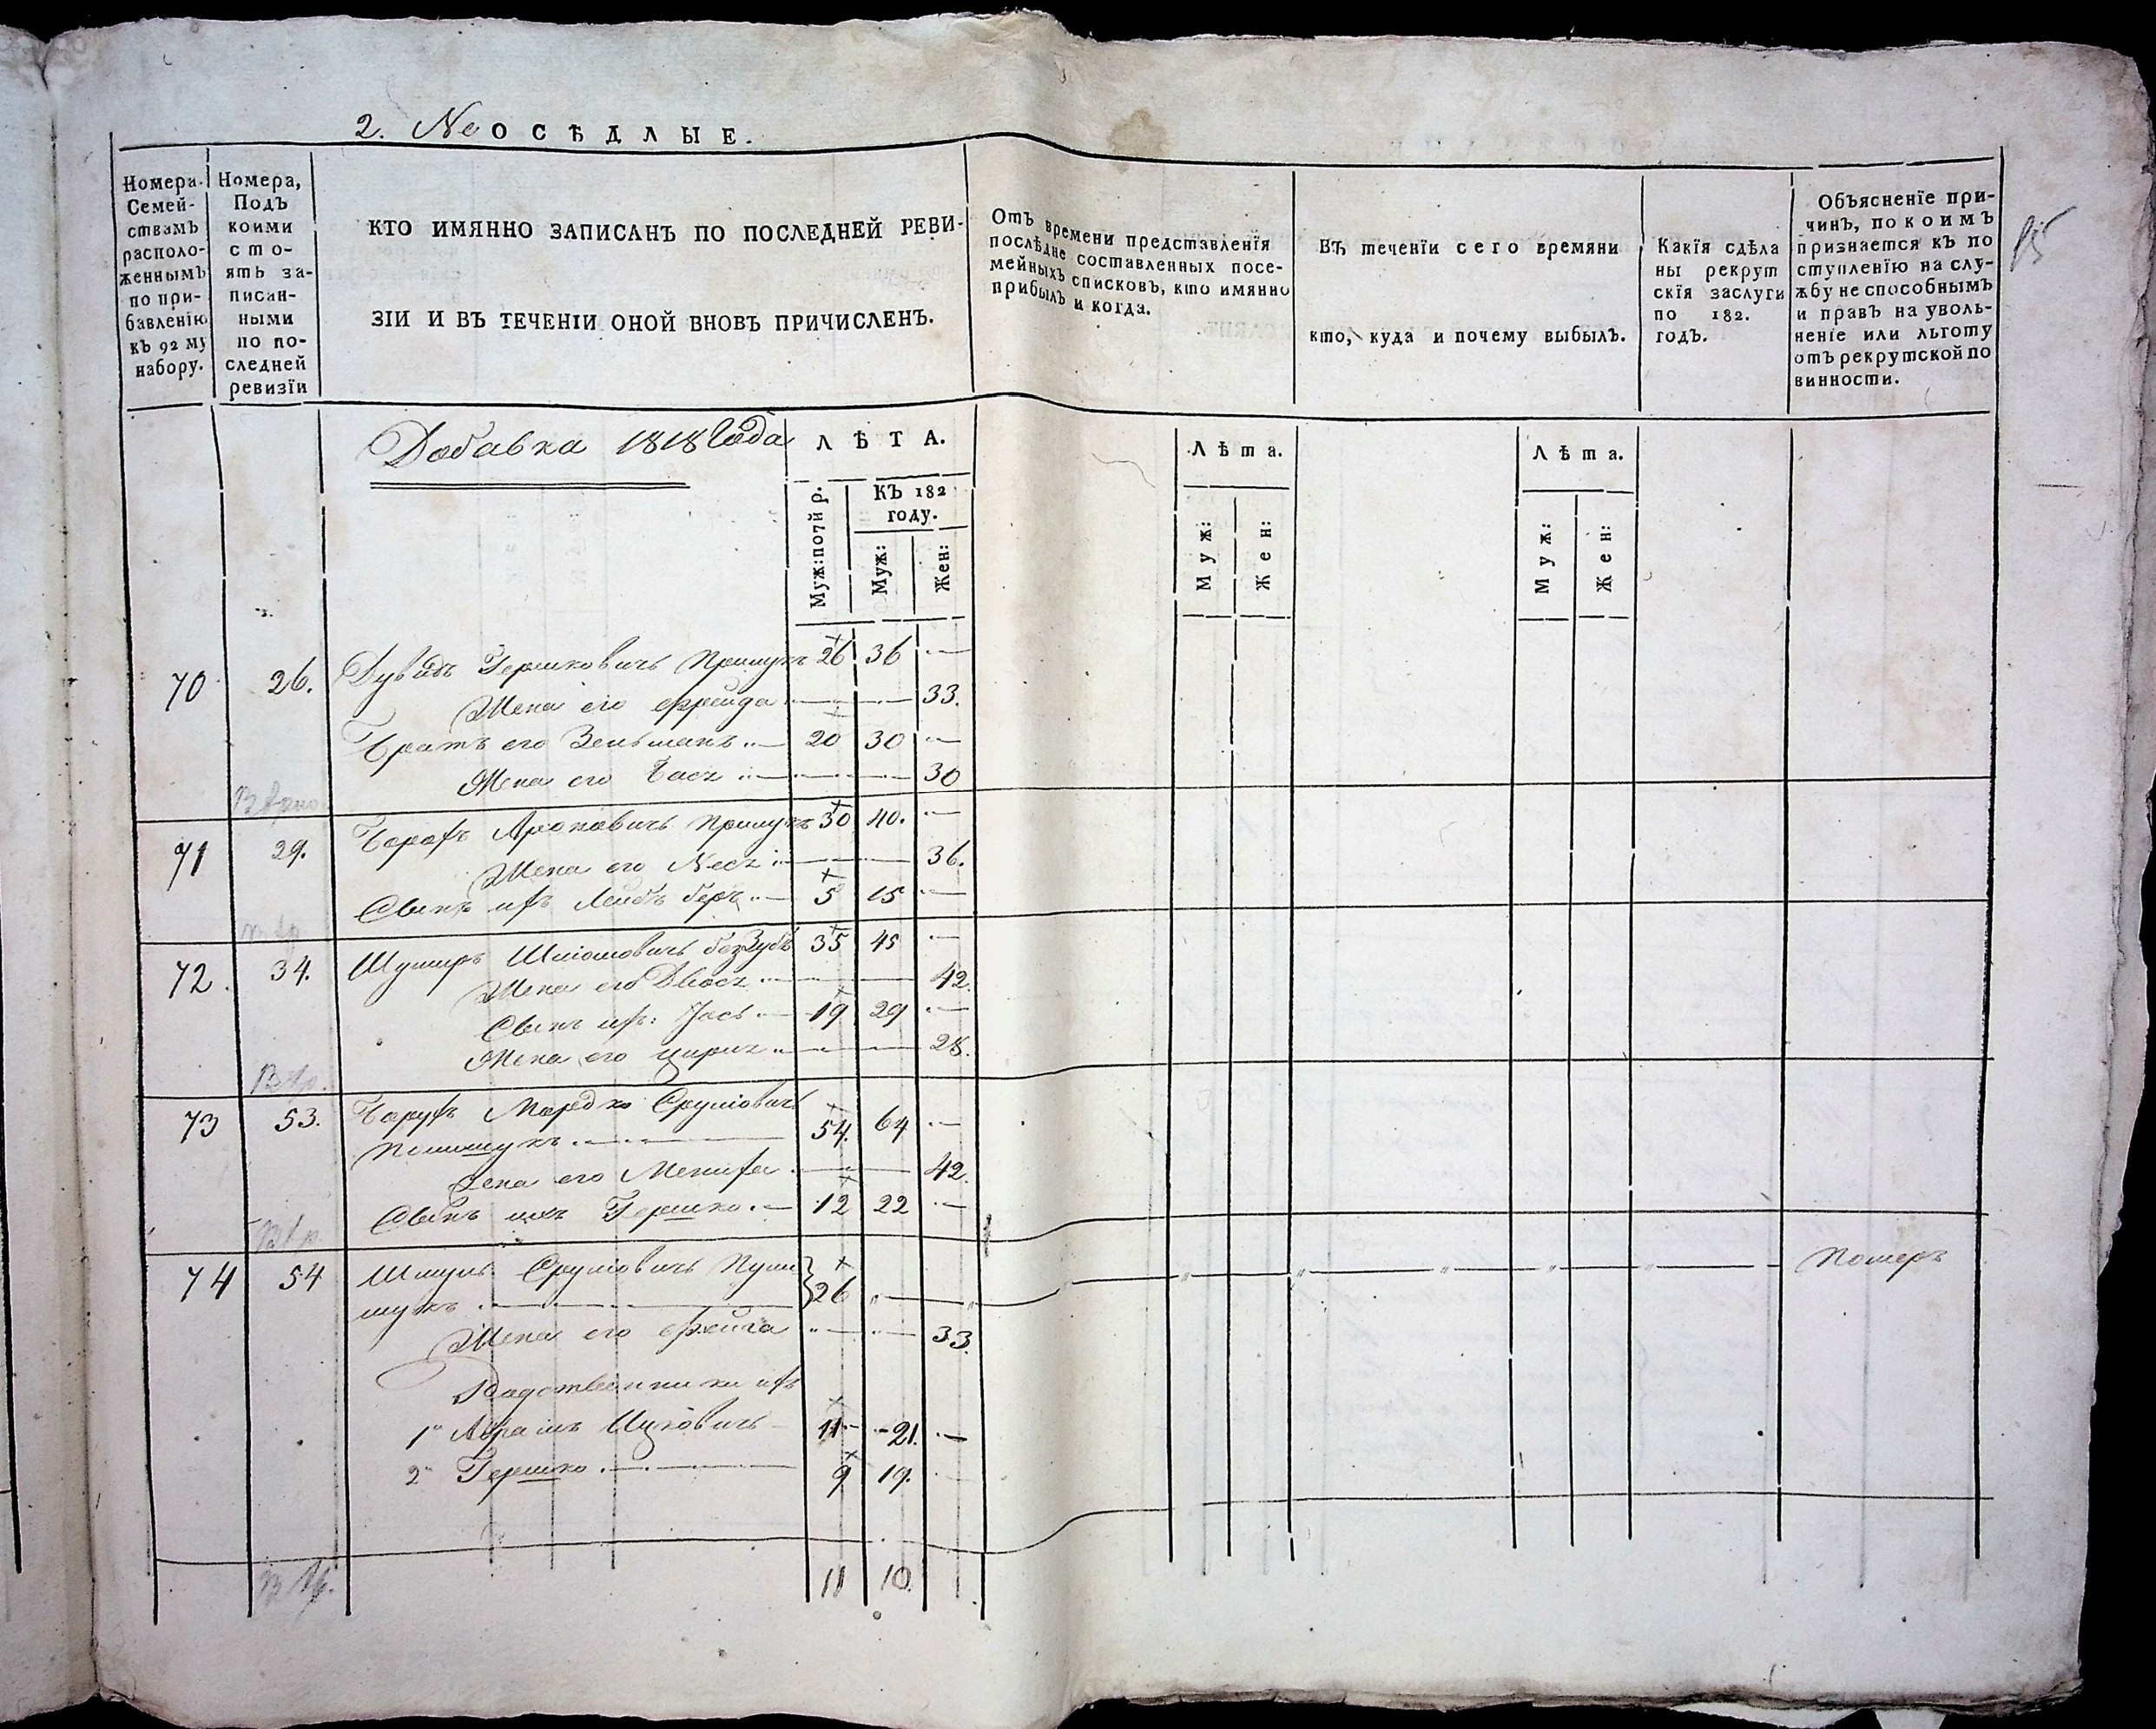 2. Неосѣдлые.
Номера Семействамъ расположеннымъ по прибавленію къ 92 му набору.
Номера, Подъ коими стоятъ записанными по последней ревизіи
КТО ИМЯННО ЗАПИСАНЪ ПО ПОСЛЕДНЕЙ РЕВИ-
ЗІИ И ВЪ ТЕЧЕНІИ ОНОЙ ВНОВЪ ПРИЧИСЛЕНЪ.
Отъ времени представленія
послѣдне составленныхъ посе-
мейныхъ списковъ, кто имянно
прибылъ и когда.
Въ теченіи сего времяни
кто, куда и почему выбылъ.
Какія сдѣла
ны рекрут
скія заслуги
по 182.
годъ.
Объясненіе при-
чинъ, по коимъ
признается къ по
ступленію на слу-
жбу не способнымъ
и правъ на уволь-
неніе или льготу
отъ рекрутской по
винности.
Добавка 1818 Года
ЛѢТА.
Муж: по 7й р.
КЪ 182
году.
Муж:
Жен:
Лѣта.
Муж:
Жен:
Лѣта.
Муж:
Жен:
70 26. Дувидъ Гершковичъ 26 36
Жена его Фрейда 33.
Братъ его Зельманъ 20 30
Жена его Бася 30
71 29. Борохъ Ароновичъ 30 40.
Жена его Неся 36.
Сынъ ихъ Лейбъ Беръ 5 15
72. 34. Шмюловичъ Беззубъ 35 45
Жена его Двося 42.
Сынъ ихъ: Іось 19 29
Жена его 28.
73 53. Борухъ Мордко Сруловичъ
Полишукъ 54. 64
Жена его Мениха 42.
Сынъ ихъ Гершко 12 22
74 54 Шмуль Сруловичъ
26 Померъ
Жена его Фрейга 33.
Родственники ихъ
1й Абрамъ Ицковичъ 11 21.
2й Гершко 9 19.
11 10.